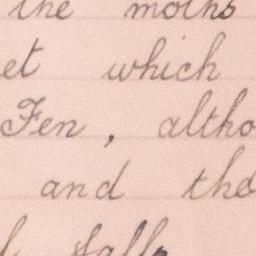 the moths
et which
Fen, altho
and the